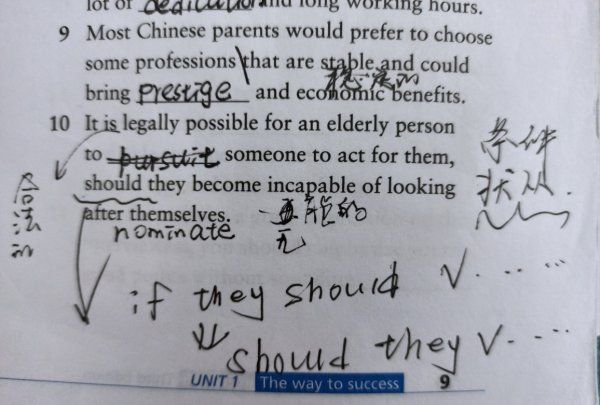 lot of dedication and long working hours.
9 Most Chinese parents would prefer to choose
some professions that are stable and could
稳定的
bring prestige and economic benefits.
10 It is legally possible for an elderly person
to pursuit someone to act for them,
should they become incapable of looking
after themselves.
合法的
条件
状从.
无能的
nominate
if they should V.....
should they V.....
UNIT 1 The way to success 9